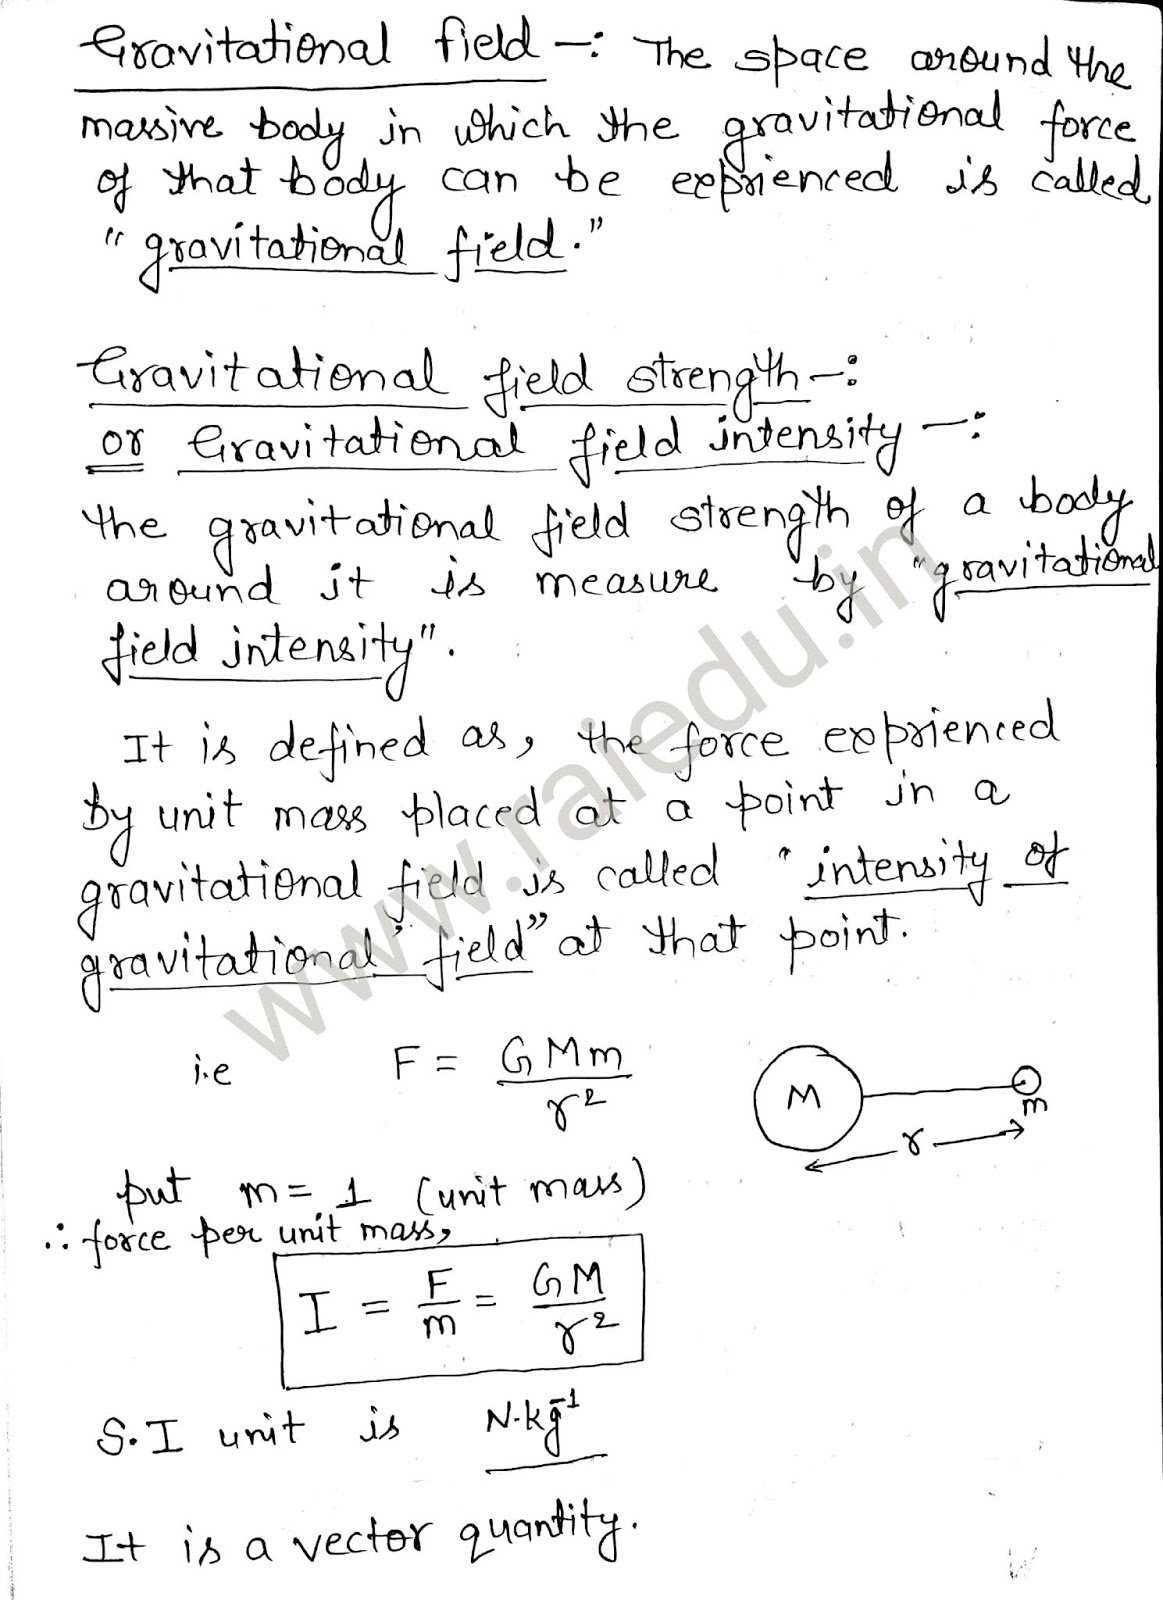 Gravitational field -: The space around the
massive body in which the gravitational force
of that body can be exprienced is called
"gravitational field."
Gravitational field strength -:
or Gravitational field intensity -:
the gravitational field strength of a body
around it is measure by "gravitational
field intensity".
It is defined as, the force exprienced
by unit mass placed at a point in a
gravitational field is called "intensity of
gravitational field" at that point.
i.e F = GMm / r²
M m
r
put m = 1 (unit mass)
∴ force per unit mass,
I = F/m = GM/r²
S.I unit is N·kg⁻¹
It is a vector quantity.
www.raiedu.in